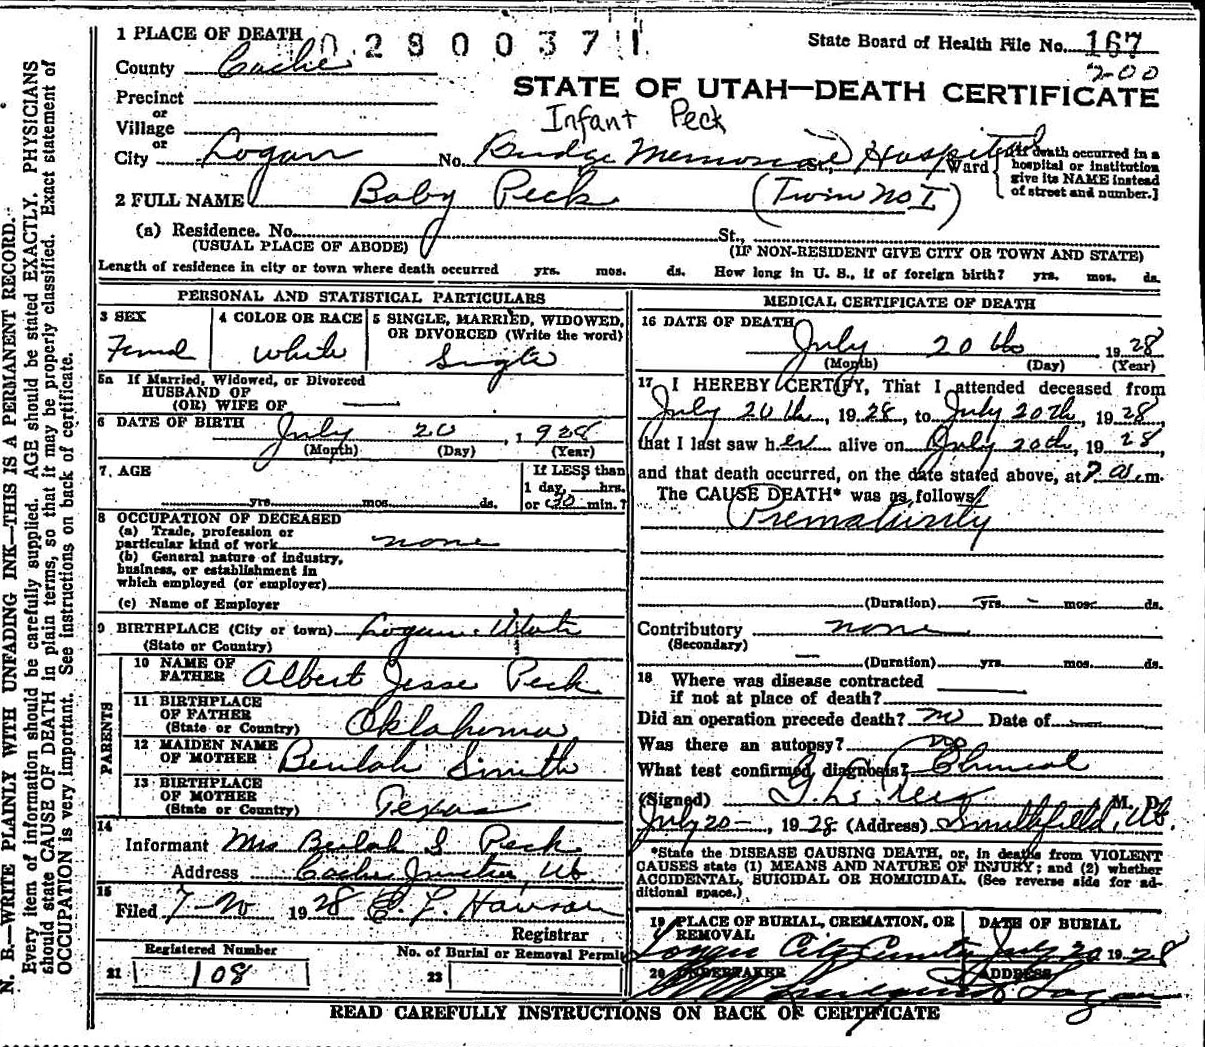 1 PLACE OF DEATH
0 2 8 0 0 3 7 1
State Board of Health File No. 167
200
County Cache
STATE OF UTAH—DEATH CERTIFICATE
Precinct
or
Village
Infant Peck
or
City Logan No. Budge Memorial St., Hospital Ward
[If death occurred in a
hospital or institution
give its NAME instead
of street and number.]
2 FULL NAME Baby Peck (Twin No I)
(a) Residence. No. St.,
(USUAL PLACE OF ABODE) (IF NON-RESIDENT GIVE CITY OR TOWN AND STATE)
Length of residence in city or town where death occurred yrs. mos. ds. How long in U. S., if of foreign birth? yrs. mos. ds.
PERSONAL AND STATISTICAL PARTICULARS
3 SEX 4 COLOR OR RACE 5 SINGLE, MARRIED, WIDOWED,
OR DIVORCED (Write the word)
White Single
5a If Married, Widowed, or Divorced
HUSBAND OF
(OR) WIFE OF
6 DATE OF BIRTH July 20, 1928
(Month) (Day) (Year)
7. AGE If LESS than
1 day, hrs.
yrs. mos. ds. or 30 min.?
8 OCCUPATION OF DECEASED
(a) Trade, profession or
particular kind of work none
(b) General nature of industry,
business, or establishment in
which employed (or employer)
(c) Name of Employer
9 BIRTHPLACE (City or town) Logan. Utah
(State or Country)
PARENTS
10 NAME OF
FATHER Albert Jesse Peck
11 BIRTHPLACE
OF FATHER
(State or Country) Oklahoma
12 MAIDEN NAME
OF MOTHER Beulah Smith
13 BIRTHPLACE
OF MOTHER
(State or Country) Texas
14
Informant Mrs Beulah S Peck
Address Cache Junction, Ut
15
Filed 7-20 1928
Registrar
Registered Number No. of Burial or Removal Permit
21 108 22
MEDICAL CERTIFICATE OF DEATH
16 DATE OF DEATH
July 20th 1928
(Month) (Day) (Year)
17 I HEREBY CERTIFY, That I attended deceased from
July 20th, 1928, to July 20th, 1928,
that I last saw her alive on July 20th, 1928,
and that death occurred, on the date stated above, at 7 a.m.
The CAUSE DEATH* was as follows:
Prematurity
(Duration) yrs. mos. ds.
Contributory none
(Secondary)
(Duration) yrs. mos. ds.
18 Where was disease contracted
if not at place of death?
Did an operation precede death? no Date of
Was there an autopsy? no
What test confirmed diagnosis? Clinical
(Signed) M. D.
July 20, 1928 (Address) Smithfield, Ut.
*State the DISEASE CAUSING DEATH, or, in deaths from VIOLENT
CAUSES state (1) MEANS AND NATURE OF INJURY; and (2) whether
ACCIDENTAL, SUICIDAL OR HOMICIDAL. (See reverse side for ad-
ditional space.)
19 PLACE OF BURIAL, CREMATION, OR DATE OF BURIAL
REMOVAL
Logan City Cemetery July 20 1928
20 UNDERTAKER ADDRESS
Logan
READ CAREFULLY INSTRUCTIONS ON BACK OF CERTIFICATE
N. B.—WRITE PLAINLY WITH UNFADING INK—THIS IS A PERMANENT RECORD.
Every item of information should be carefully supplied. AGE should be stated EXACTLY. PHYSICIANS
should state CAUSE OF DEATH in plain terms, so that it may be properly classified. Exact statement of
OCCUPATION is very important. See instructions on back of certificate.